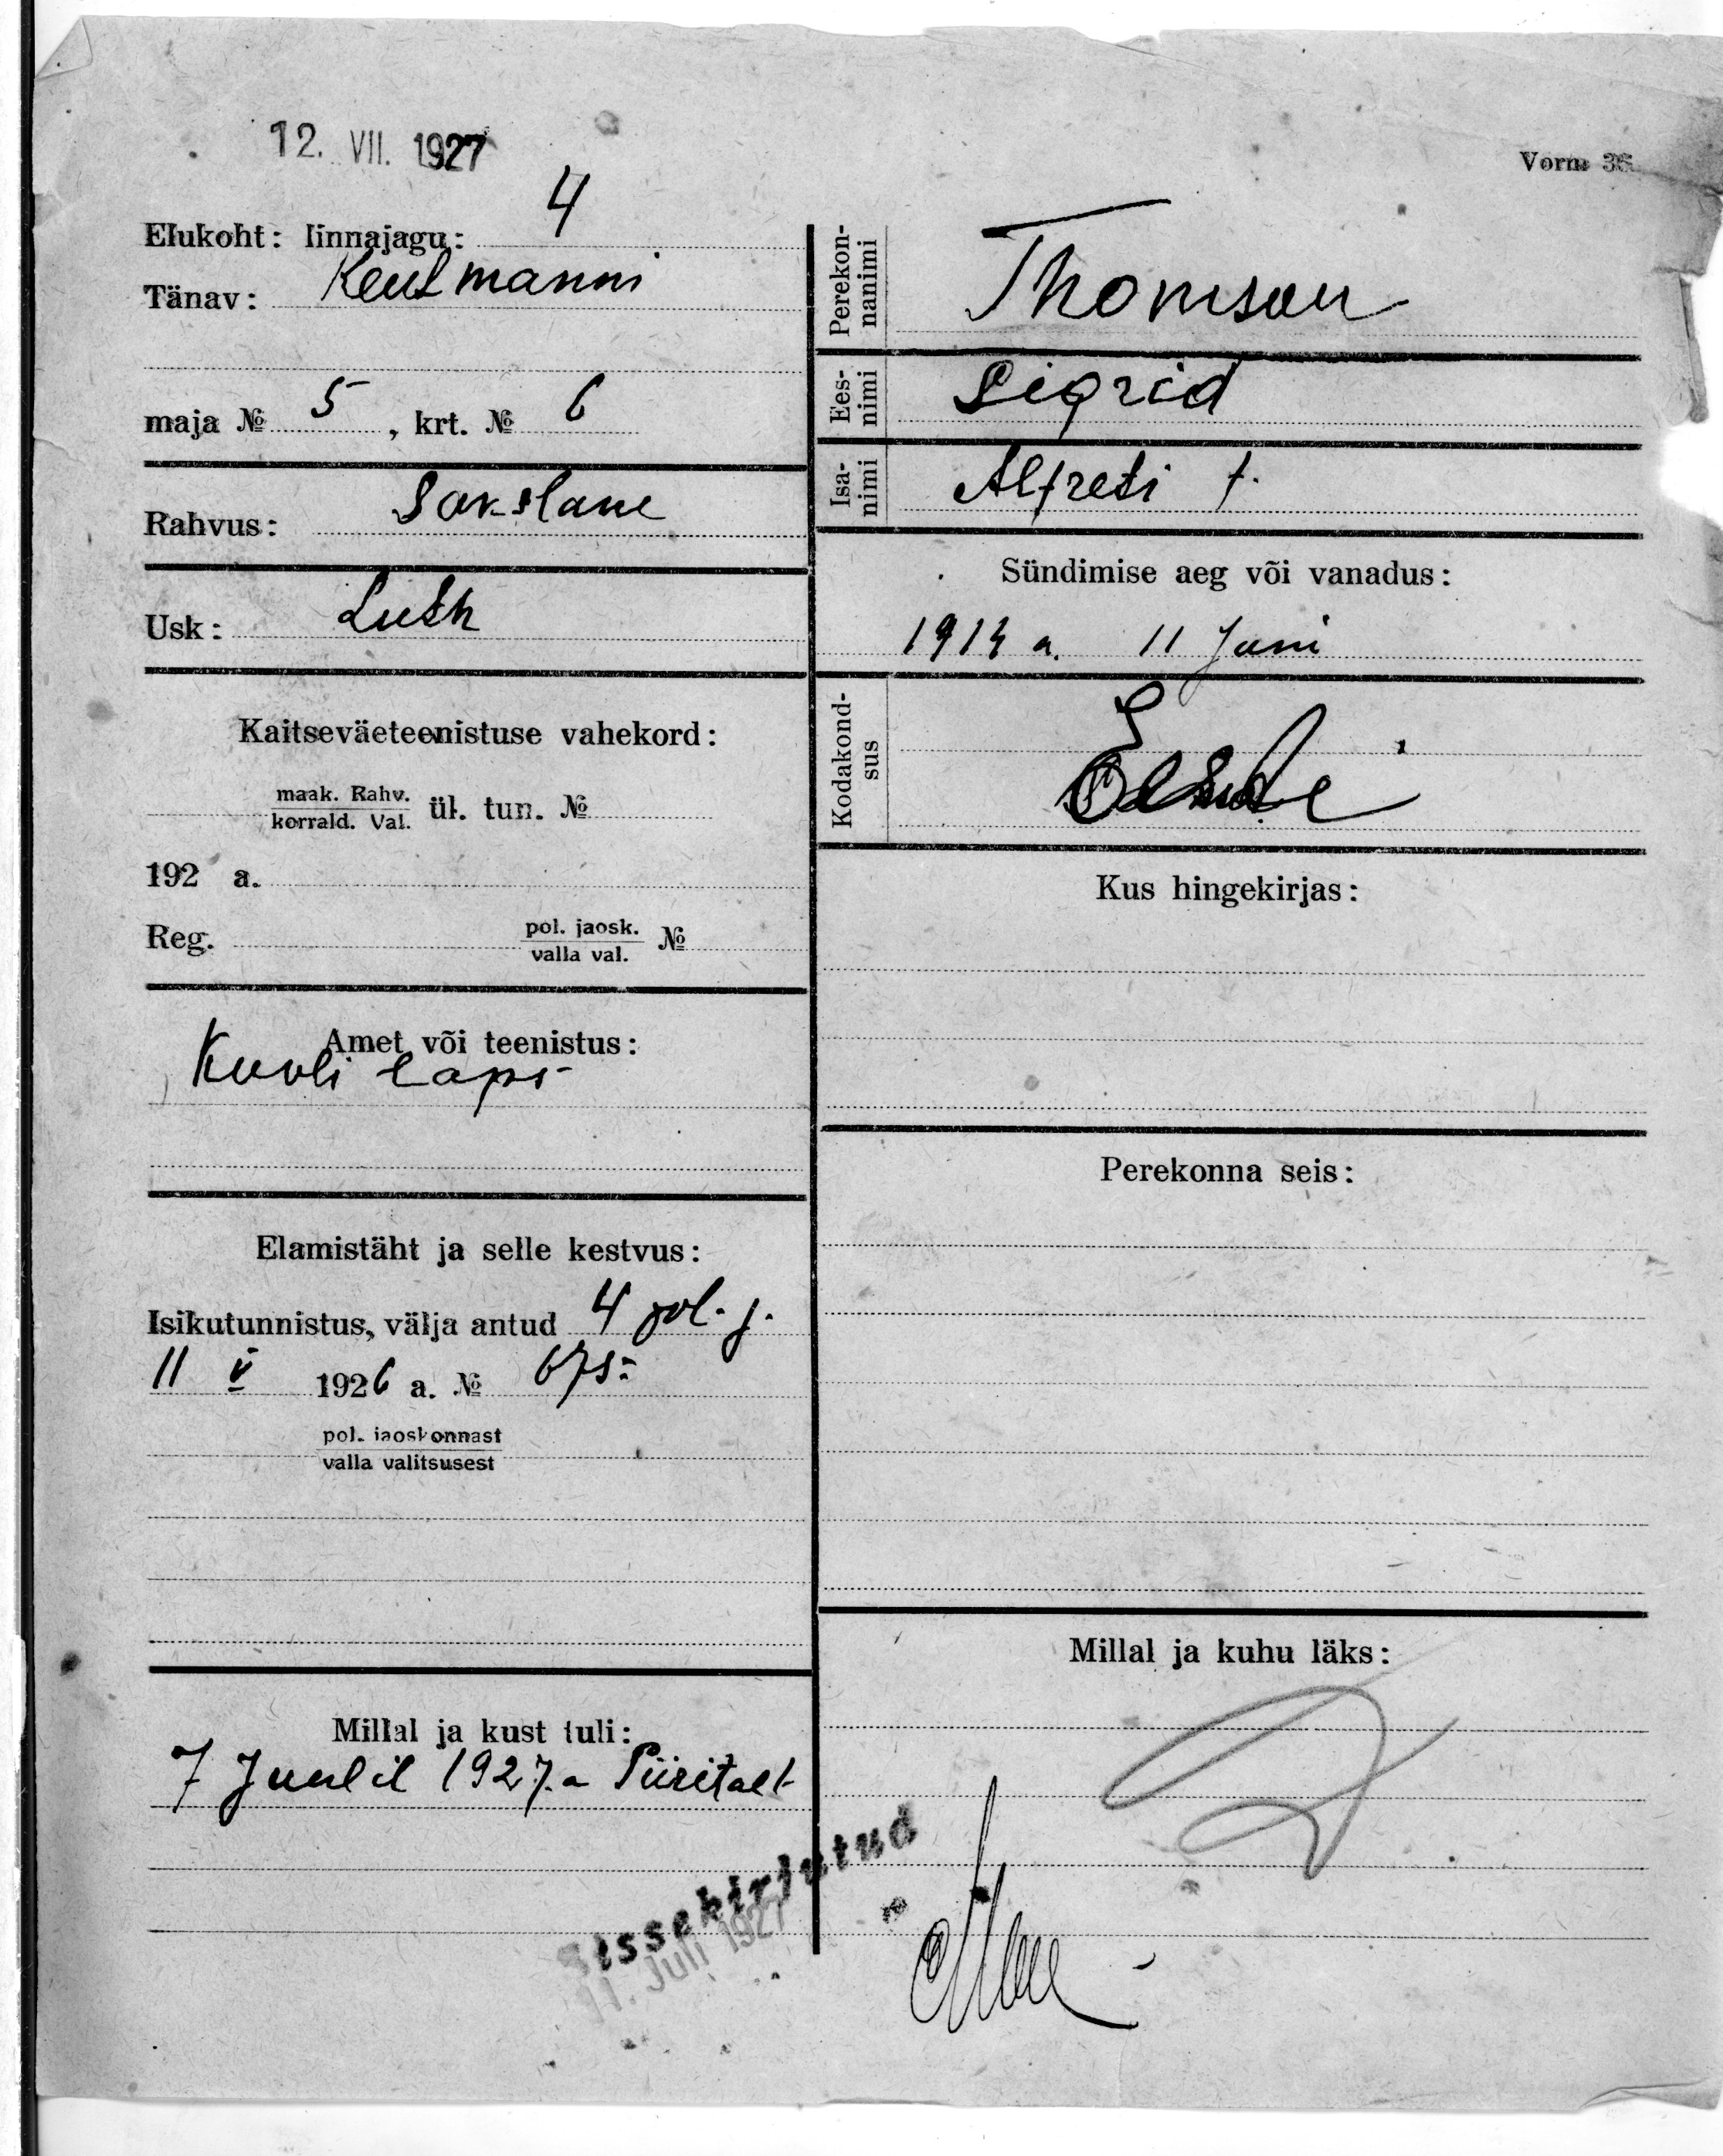 12. VII. 1927
Vorm 36
Elukoht: linnajagu: 4
Tänav: Kentmanni
maja № 5, krt. № 6
Rahvus: Sakslane
Usk: Luth
Kaitseväeteenistuse vahekord:
maak. Rahv.
korrald. Val. ül. tun. №
192 a.
Reg. pol. jaosk.
valla val. №
Amet või teenistus:
Kooli laps
Elamistäht ja selle kestvus:
Isikutunnistus, välja antud 4 pol. j.
11 V 1926 a. № 675
pol. jaoskonnast
valla valitsusest
Millal ja kust tuli:
7 Juulil 1927. a Piiritalt
Perekon-
nanimi
Thomson
Ees-
nimi
Sigrid
Isa-
nimi
Alfredi t.
Sündimise aeg või vanadus:
a. 11 Juni
Kodakond-
sus
Eesti
Kus hingekirjas:
Perekonna seis:
Millal ja kuhu läks:
Sissekirjutud
11. Juli 1927